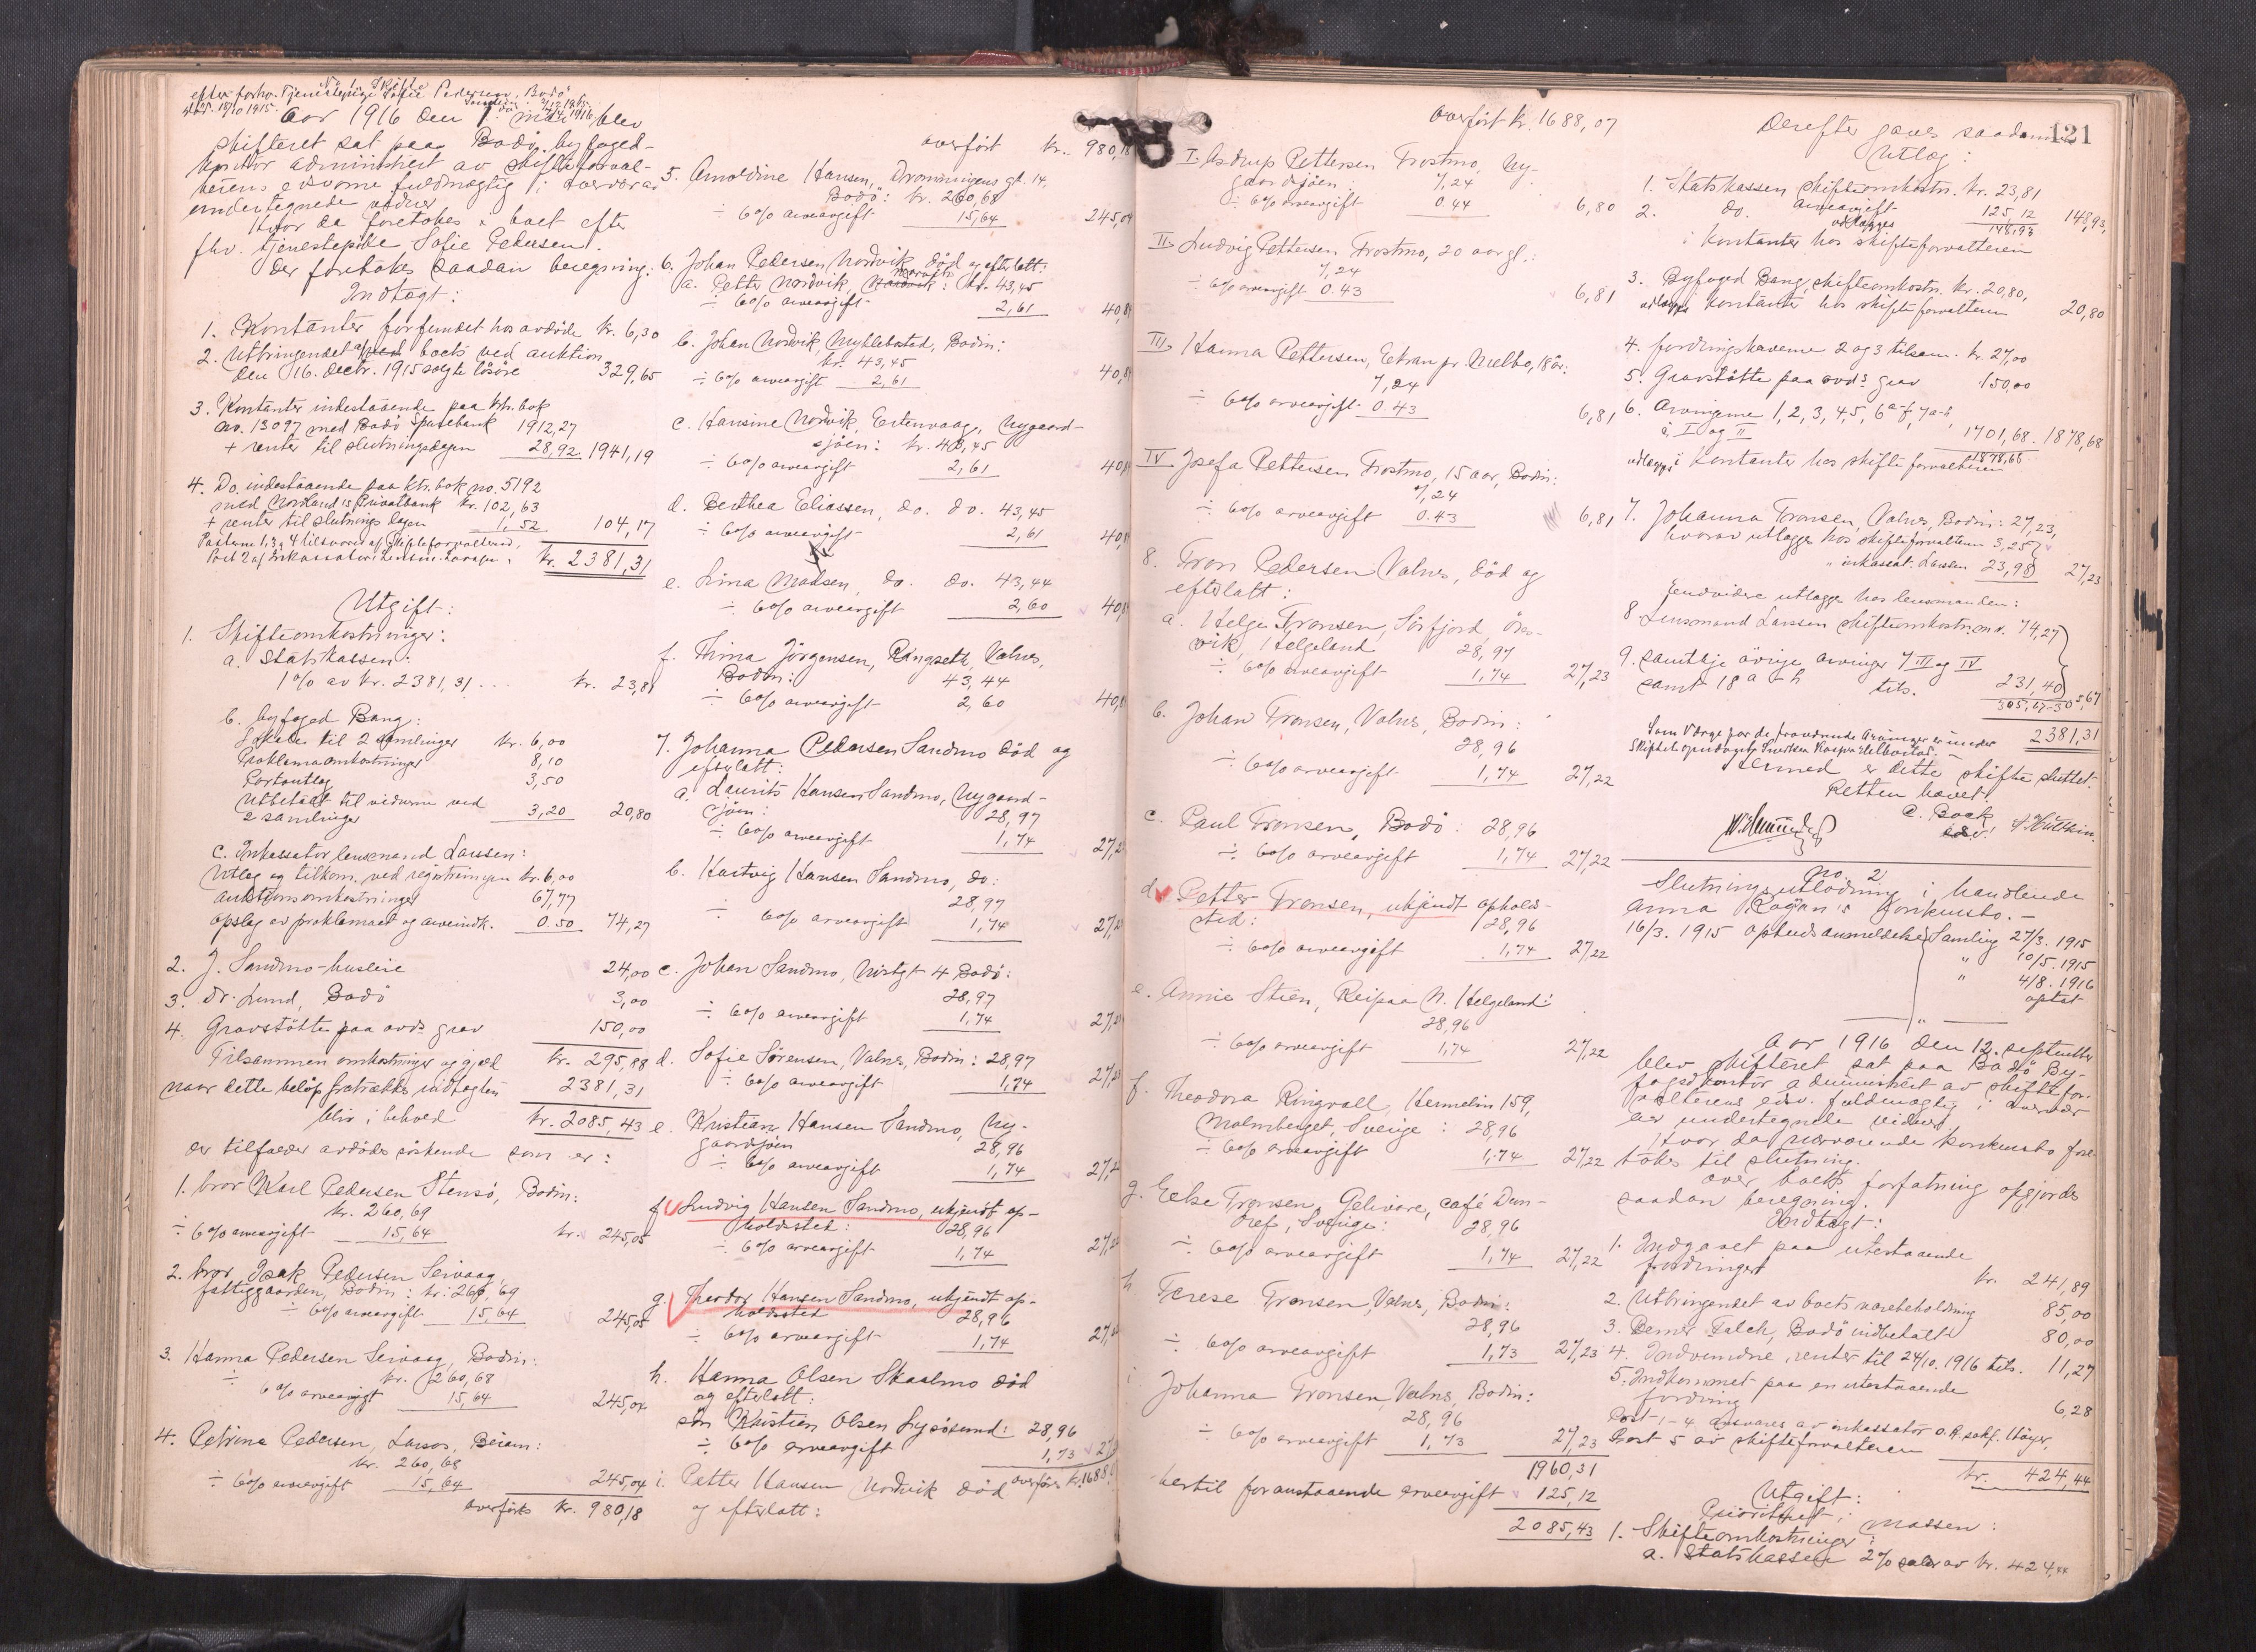 No. 1. Skifte
efter forhv. Tjenestepige Sofie Pedersen, Bodö
död 18/10 1915. Samling: 2/12 1915.
Aar 1916 den 1. mai blev
skifteret sat paa Bodö byfoged-
kontor administrert av skifteforval-
terens edsvorne fuldmægtig i overvær av
undertegnede vidner.
Hvor da foretokes i boet efter
fhv. tjenestepike Sofie Pedersen.
Der foretokes saadan beregning:
Indtægt:
1. Kontanter forfundet hos avdöde kr. 6,30
2. Utbringendet af boets ved auktion
den 16. decbr. 1915 solgte lösöre 329,65
3. Kontanter indestaaende paa ktr. bok
no. 13097 med Bodö Sparebank 1912,27
+ renter til slutningsdagen 28,92 1941,19
4. Do. indestaaende paa ktr. bok no. 5192
med Nordlands Privatbank kr. 102,63
+ renter til slutningsdagen 1,52 104,17
Posterne 1, 3 & 4 tilsvares af Skifteforvalteren,
Post 2 af Inkassator Lensm. Larssen.
kr. 2381,31
Utgift:
1. Skifteomkostninger:
a. Statskassen:
1% av kr. 2381,31 . . . kr. 23,81
b. byfoged Bang:
Lokale til 2 samlinger kr. 6,00
Proklamaomkostninger 8,10
Portoutlæg 3,50
Utbetalt til vidnerne ved
2 samlinger 3,20 20,80
c. Inkassator lensmand Larssen:
Utlæg og tilkom. ved registreringen kr. 6,00
auktionsomkostninger 67,77
opslag av proklamaet og arveindk. 0.50 74,27
2. J. Sandmo - husleie 24,00
3. Dr. Lund, Bodö 3,00
4. Gravstötte paa avds grav 150,00
Tilsammen omkostninger og gjæld kr. 295,88
naar dette belöp fratrækkes indtægten 2381,31
blir i behold kr. 2085,43
der tilfalder avdödes söskende som er:
1. bror Karl Pedersen Stensö, Bodin:
kr. 260,69
÷ 6% arveavgift 15,64 kr. 245,05
2. bror Isak Pedersen Seivaag,
fattiggaarden, Bodin: kr. 260,69
÷ 6% arveavgift 15,64 245,05
3. Hanna Pedersen Seivaag, Bodin:
kr. 260,68
÷ 6% arveavgift 15,64 245,04
4. Petrina Pedersen, Larsos, Beiarn:
kr. 260,68
÷ 6% arveavgift 15,64 245,04
overföres kr. 980,18
overfört kr. 980,18
5. Arnoldine Hansen, Dronningens gt. 14,
Bodö: kr. 260,68
÷ 6% arveavgift 15,64 245,04
6. Johan Pedersen Nordvik död og efterlatt:
a. Petter Nordvik, kr. 43,45
÷ 6% arveavgift 2,61
b. Johan Nordvik, Myklebostad, Bodin:
kr. 43,45
÷ 6% arveavgift 2,61
c. Hansine Nordvik, Evtenvaage, Nygaard-
sjöen: kr. 43,45
÷ 6% arveavgift 2,61
d. Berthea Eliassen, do. do. 43,45
÷ 6% arveavgift 2,61
e. Lina Madsen, do. do. 43,44
÷ 6% arveavgift 2,60
f. Trina Jörgensen, Ringseth, Valnes,
Bodin: 43,44
÷ 6% arveavgift 2,60
7. Johanna Pedersen Sandmo död og
efterlatt:
a. Laurits Hansen Sandmo, Nygaard-
sjöen: 28,97
÷ 6% arveavgift 1,74
b. Hartvig Hansen Sandmo, do:
28,97
÷ 6% arveavgift 1,74
c. Johan Sandmo, Nörtgt 4 Bodö:
28,97
÷ 6% arveavgift 1,74
d. Sofie Sörensen, Valnes, Bodin: 28,97
÷ 6% arveavgift 1,74
e. Kristian Hansen Sandmo, Ny-
gaardsjöen 28,96
÷ 6% arveavgift 1,74
f. Ludvig Hansen Sandmo, ukjendt op-
holdssted: 28,96
÷ 6% arveavgift 1,74
g. Theodor Hansen Sandmo, ukjendt op-
holdssted 28,96
÷ 6% arveavgift 1,74
h. Hanna Olsen Skaalmo död
og efterlatt:
sön Kristian Olsen Lysösund: 28,96
÷ 6% arveavgift 1,73
overföres kr. 1688
i. Petter Hansen Nordvik död
og efterlatt:
overfört kr. 1688,07
I. Astrup Pettersen Trostmo, Ny-
gaardsjöen: 7,24
÷ 6% arveavgift 0.44 6,80
II. Ludvig Pettersen Trostmo, 20 aar gl.:
7,24
÷ 6% arveavgift 0.43 6,81
III. Hanna Pettersen, Eltran pr. Melbo, 18 år:
7,24
÷ 6% arveavgift 0.43 6,81
IV. Josefa Pettersen Trostmo, 15 aar, Bodin:
7,24
÷ 6% arveavgift 0.43 6,81
8. Tron Pedersen Valnes, död og
efterlatt:
a. Helge Tronsen, Sörfjord, Öres-
vik, Helgeland 28,97
÷ 6% arveavgift 1,74 27,23
b. Johan Tronsen, Valnes, Bodin:
28,96
÷ 6% arveavgift 1,74 27,22
c. Paul Tronsen, Bodö: 28,96
÷ 6% arveavgift 1,74 27,22
d. Petter Tronsen, ukjendt opholds-
sted: 28,96
÷ 6% arveavgift 1,74 27,22
e. Annie Stien, Reipaa N. Helgeland:
28,96
÷ 6% arveavgift 1,74 27,22
f. Theodora Ringvall, Hermelin 159,
Malmberget, Sverige: 28,96
÷ 6% arveavgift 1,74 27,22
g. Elise Tronsen, Gelivare, café Dun-
dref, Sverige: 28,96
÷ 6% arveavgift 1,74 27,22
h. Terese Tronsen, Valnes, Bodin:
28,96
÷ 6% arveavgift 1,73 27,23
i. Johanna Tronsen, Valnes, Bodin:
28,96
÷ 6% arveavgift 1,73 27,23
1960,31
hertil foranstaaende arveavgift 125,12
2085,43
121
Derefter gaves saadan
Utlæg:
1. Statskassen skifteomkostn. kr. 23,81
2. do. arveavgift 125,12 148,93
utlægges 148,93
i kontanter hos skifteforvalteren
3. Byfoged Bang, skifteomkostn. kr. 20,80,
utlægges kontanter hos skifteforvalteren 20,80
4. fordringshaverne 2 og 3 tilsam. kr. 27,00
5. Gravstötte paa avds grav 150,00
6. Arvingerne 1, 2, 3, 4, 5, 6 a-f, 7 a-h,
i, I og II 1701,68. 1878,68
1878,68
utlægges i kontanter hos skifteforvalteren
7. Johanna Tronsen, Valnes, Bodin: 27,23,
hvorav utlægges hos skifteforvalteren 3,25
" inkassat. Larssen 23,98 27,23
Endvidere utlægges hos lensmanden:
8. Lensmand Larssen skifteomkostn. m.v. 74,27
9. samtlige övrige arvinger 7 III og IV
samt 18 a - h tils. 231,40
305,67 305,67
2381,31
Som Værge for de fraværende Arvinger er
Hermed er dette skifte sluttet.
Retten hævet.
C. Bock
edsv.
No. 2
Slutningsutlodning i handlende
Anna Hagan's konkursbo. -
16/3. 1915 opbudsanmeldelse Samling 27/3. 1915
" 10/5. 1915
" 4/8. 1916
optat
Aar 1916 den 12. september
blev skifteret sat paa Bodö By-
fogedkontor administrert av skiftefor-
valterens edsv. fuldmægtig i overvær
av undertegnede vidner.
Hvor da nærværende konkursbo fore-
tokes til slutning.
Over boets forfatning opgjordes
saadan beregning.
Indtægt:
1. Indgaaet paa utestaaende
fordringer kr. 241,89
2. Utbringendet av boets varebeholdning 85,00
3. Berner Falch, Bodö indbetalt 80,00
4. Indvundne renter til 24/10. 1916 tils. 11,27
5. Indkommet paa en utestaaende
fordring 6,28
Post 1 - 4 ansvares av inkassator O.R.sakf. Höyer,
Post 5 av skifteforvalteren
kr. 424,44
Utgift:
Prioritet i massen:
1. Skifteomkostninger:
a. Statskassen 2% av kr. 424,44